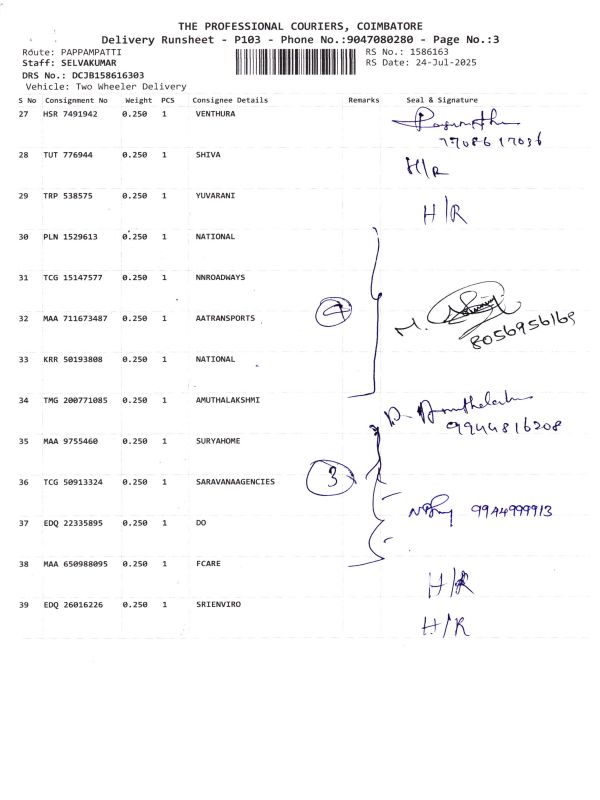 THE PROFESSIONAL COURIERS, COIMBATORE
Delivery Runsheet - P103 - Phone No.:9047080280 - Page No.:3
Route: PAPPAMPATTI RS No.: 1586163
Staff: SELVAKUMAR RS Date: 24-Jul-2025
DRS No.: DCJB158616303
Vehicle: Two Wheeler Delivery
S No Consignment No Weight PCS Consignee Details Remarks Seal & Signature
27 HSR 7491942 0.250 1 VENTHURA
28 TUT 776944 0.250 1 SHIVA H/R
29 TRP 538575 0.250 1 YUVARANI H/R
30 PLN 1529613 0.250 1 NATIONAL
31 TCG 15147577 0.250 1 NNROADWAYS
32 MAA 711673487 0.250 1 AATRANSPORTS 4 M. 8056956169
33 KRR 50193808 0.250 1 NATIONAL
34 TMG 200771085 0.250 1 AMUTHALAKSHMI
9944816208
35 MAA 9755460 0.250 1 SURYAHOME
36 TCG 50913324 0.250 1 SARAVANAAGENCIES 3
9944999913
37 EDQ 22335895 0.250 1 DO
38 MAA 650988095 0.250 1 FCARE H/R
39 EDQ 26016226 0.250 1 SRIENVIRO H/R